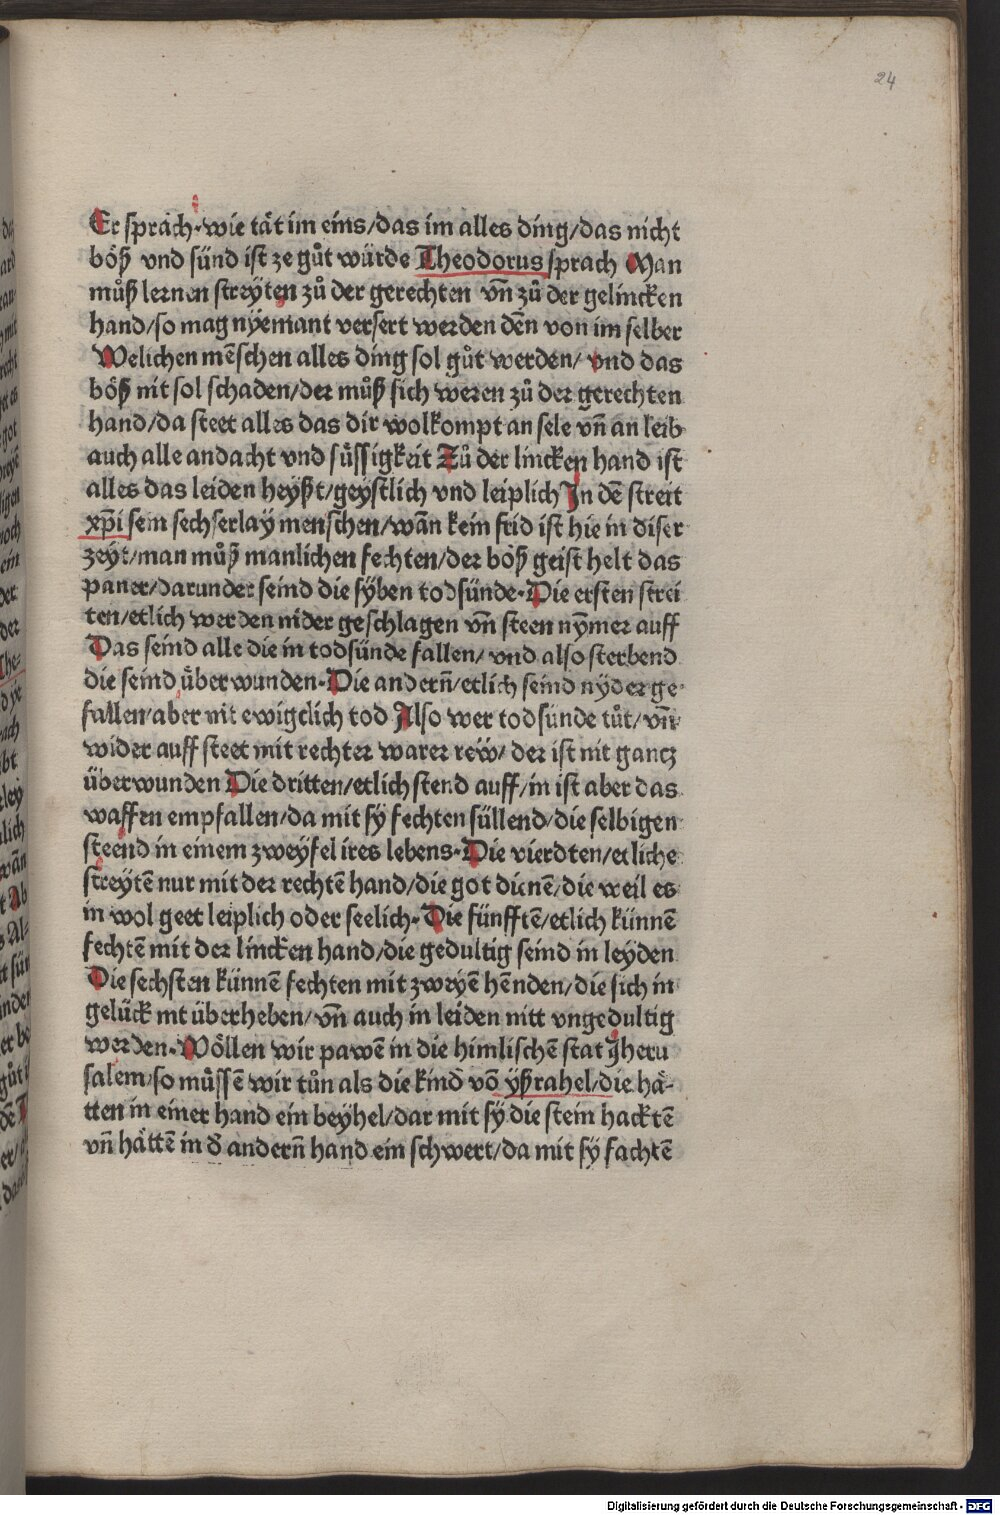 24
Er sprach·wie tät im eins/das im alles ding/das nicht
böß vnd sünd ist ze gůt würde Theodorus sprach Man
můß lernen streyten zů der gerechten vn̄ zů der gelincken
hand/so mag nyemant versert werden den̄ von im selber
Welichen mēschen alles ding sol gůt werden/ vnd das
böß nit sol schaden/der můß sich weren zů der gerechten
hand/da steet alles das dir wolkompt an sele vn̄ an leib
auch alle andacht vnd süssigkeit Zů der lincken hand ist
alles das leiden heyßt/geystlich vnd leiplich In dē streit
xp̄i sein sechserlay menschen/wān kein frid ist hie in diser
zeyt/man můß manlichen fechten/der böß geist helt das
paner/darunder seind die syben todsünde·Die ersten strei
ten/etlich werden nider geschlagen vn̄ steen nymer auff
Das seind alle die in todsünde fallen/ vnd also sterbend
die seind überwunden·Die andern̄/etlich seind nyder ge
fallen/aber nit ewigclich tod Also wer todsünde tůt/vn̄
wider auff steet mit rechter warer rew/ der ist nit gantz
überwunden Die dritten/etlich stend auff/in ist aber das
waffen empfallen/da mit sy fechten süllend/die selbigen
steend in einem zweyfel ires lebens·Die vierdten/etliche
streytē nur mit der rechtē hand/die got dienē/die weil es
in wol geet leiplich oder seelich·Die fünfftē/etlich künnē
fechtē mit der lincken hand/die gedultig seind in leyden
Die sechsten künnē fechten mit zweyē henden/die sich in
gelück nit überheben/vn̄ auch in leiden nitt vngedultig
werden·Wöllen wir pawē in die himlischē stat Jheru
salem/so müssē wir tůn als die kind vō yßrahel/die hä-
tten in einer hand ein beyhel/dar mit sy die stein hacktē
vn̄ hättē in d̄ andern̄ hand ein schwert/da mit sy fachtē
Digitalisierung gefördert durch die Deutsche Forschungsgemeinschaft - DFG